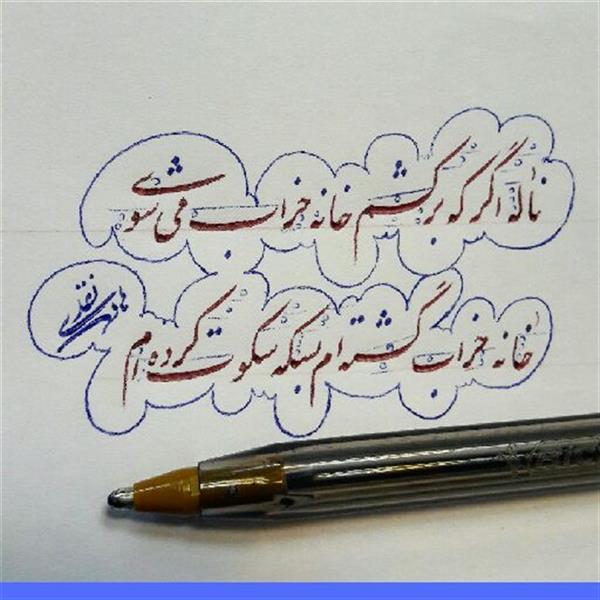 ناله اگر که برکشم خانه خراب می شوی
خانه خراب گشته ام بسکه سکوت کرده ام
هادی نقدی